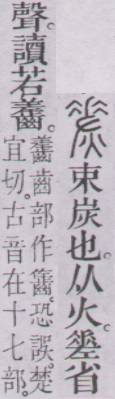 束炭也。从火。省
聲。讀若齹。
齹齒部作恐誤。楚
宜切。古音在十七部。